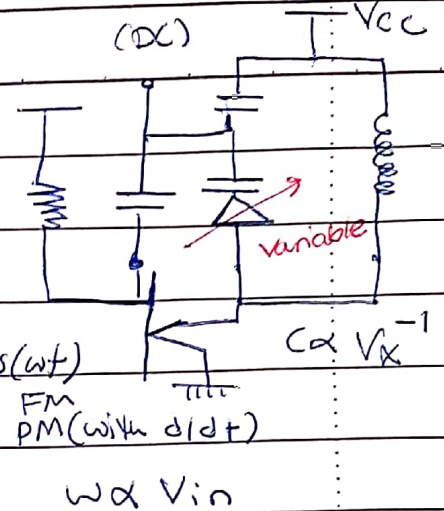 (DC)
Vcc
variable
C∝ Vx⁻¹
s(wt)
FM
PM(with d/dt)
w∝ Vin